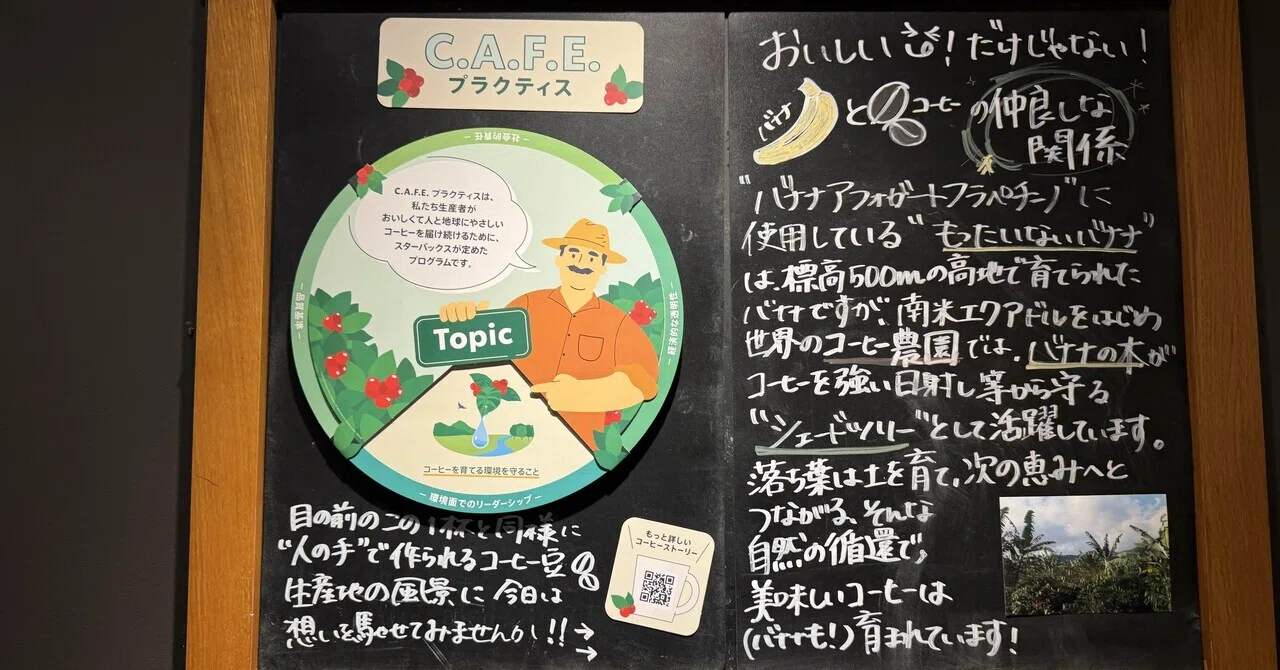 C.A.F.E.
プラクティス
― 社会的責任 ―
C.A.F.E. プラクティスは、
私たち生産者が
おいしくて人と地球にやさしい
コーヒーを届け続けるために、
スターバックスが定めた
プログラムです。
― 品質基準 ―
― 経済的な透明性 ―
Topic
コーヒーを育てる環境を守ること
― 環境面でのリーダーシップ ―
目の前のこの1杯と同様に
"人の手"で作られるコーヒー豆
生産地の風景に今日は
想いを馳せてみませんか!!→
→
もっと詳しい
コーヒーストーリー
おいしい!だけじゃない!
バナナとコーヒーの仲良しな
関係
"バナナアフォガートフラペチーノ"に
使用している"もったいないバナナ"
は、標高500mの高地で育てられた
バナナですが、南米エクアドルをはじめ
世界のコーヒー農園では、バナナの木が
コーヒーを強い日射し等から守る
"シェードツリー"として活躍しています。
落ち葉は土を育て、次の恵みへと
つながる、そんな
自然の循還で、
美味しいコーヒーは
(バナナも!)育まれています!